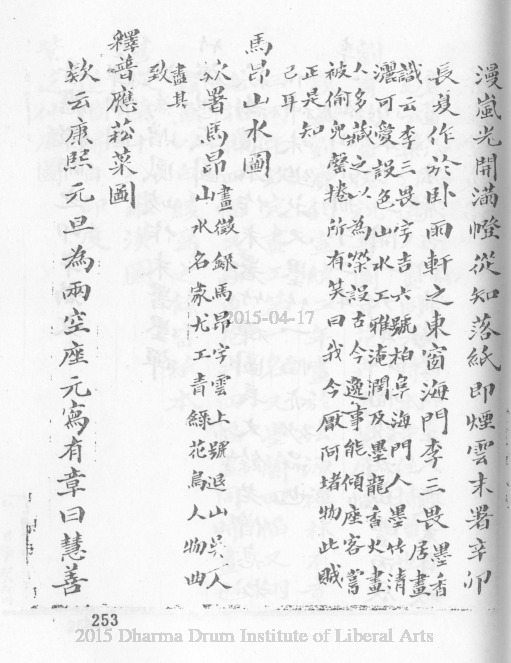 漫嵐光開滿幢從知落紙即煙雲末署辛卯
長夏作於卧雨軒之東窗海門李三畏墨香居畫
識云李三畏字吉六號柏阜海門人墨竹清
灑可愛設色山水工雅淹潤及墨龍香火畫
人多藏之以為榮設古今逸事能傾座客嘗
被偷兒罄捲所有笑曰我今厭阿堵物此賊
正是知
己耳
馬昂山水圖
欵署馬昂畫徵錄馬昂字雲上號退山吳人
山水名家尤工青綠花鳥人物曲
盡其
致
釋普應菘菜圖
欵云康熙元旦為兩空座元寫有章曰慧善
2015-04-17
253
2015 Dharma Drum Institute of Liberal Arts